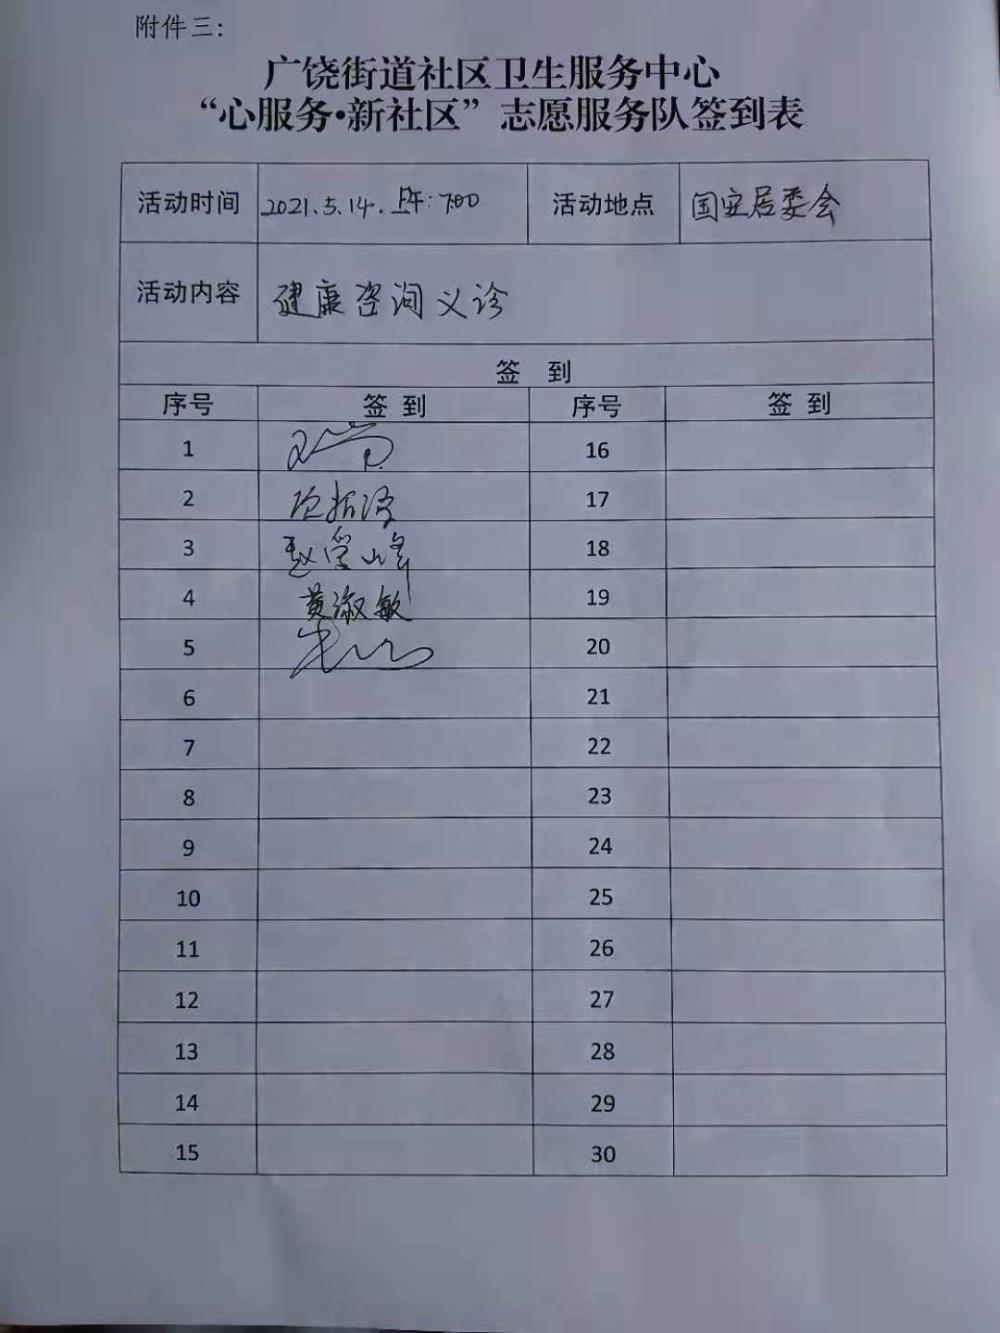 附件三：
广饶街道社区卫生服务中心
“心服务•新社区”志愿服务队签到表
活动时间 2021.5.14.上午:7:00 活动地点 国安居委会
活动内容 健康咨询义诊
签 到
序号 签 到 序号 签 到
1 16
2 17
3 赵 峰 18
4 黄淑敏 19
5 20
6 21
7 22
8 23
9 24
10 25
11 26
12 27
13 28
14 29
15 30